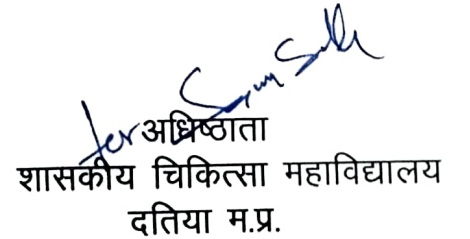 for
अधिष्ठाता
शासकीय चिकित्सा महाविद्यालय
दतिया म.प्र.